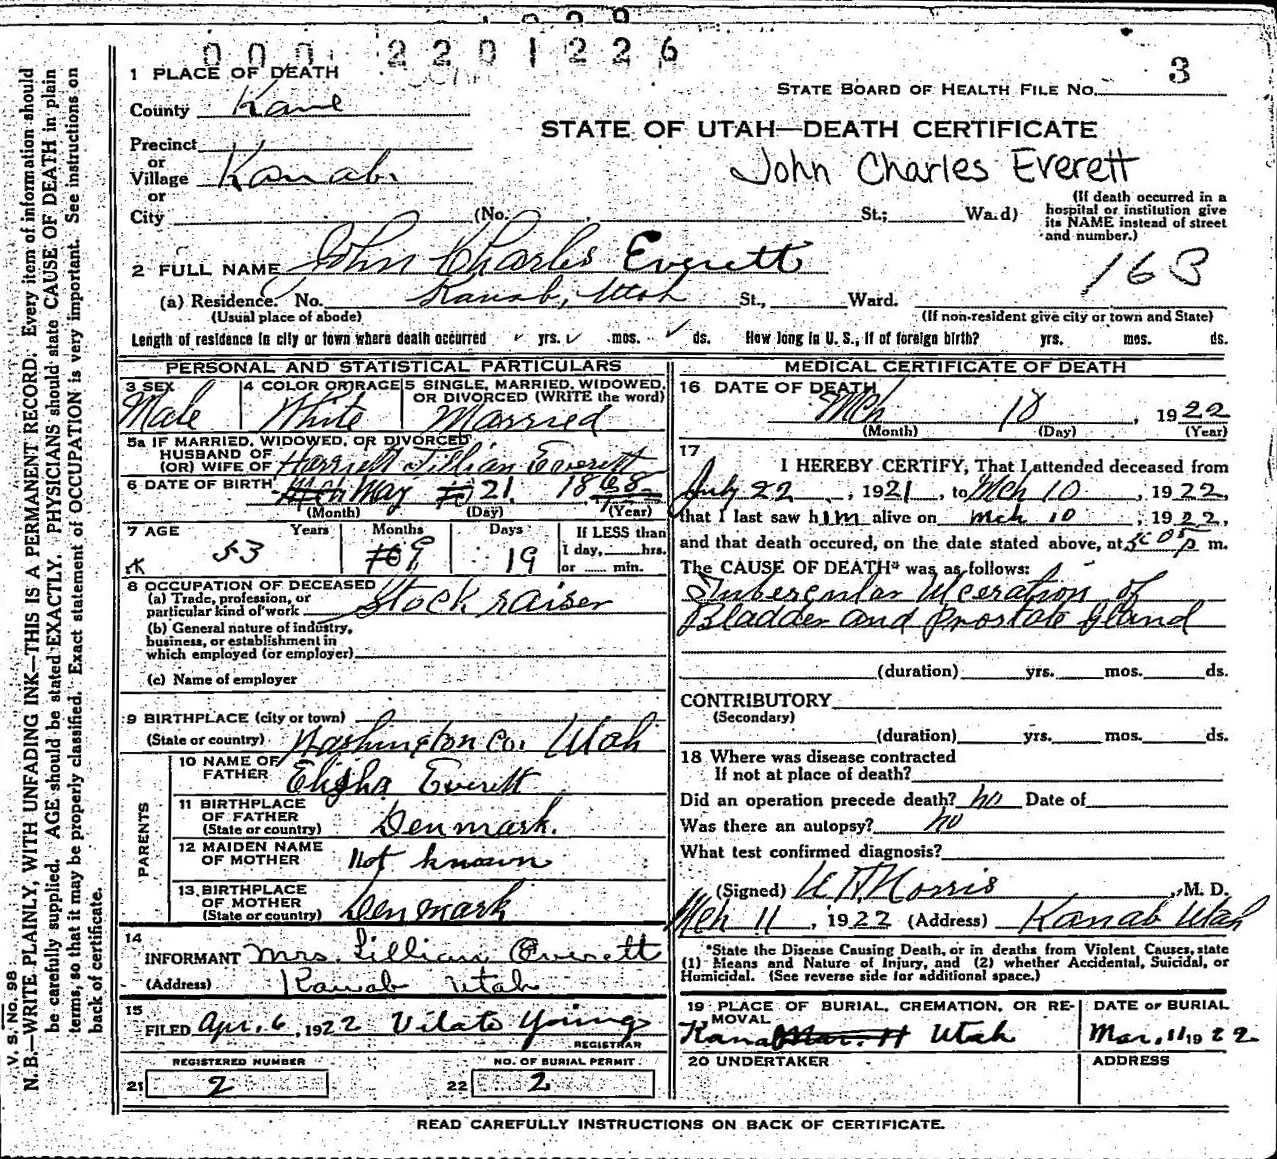 000 2201226
3
1 PLACE OF DEATH
County Kane
STATE BOARD OF HEALTH FILE No.
STATE OF UTAH—DEATH CERTIFICATE
John Charles Everett
Precinct
or
Village Kanab
or
City (No. , St.; Ward)
(If death occurred in a
hospital or institution give
its NAME instead of street
and number.)
2 FULL NAME John Charles Everett
163
(a) Residence. No. Kanab, Utah St., Ward.
(Usual place of abode) (If non-resident give city or town and State)
Length of residence in city or town where death occurred yrs. mos. ds. How long in U. S., if of foreign birth? yrs. mos. ds.
PERSONAL AND STATISTICAL PARTICULARS
3 SEX
Male
4 COLOR OR RACE
White
5 SINGLE, MARRIED, WIDOWED,
OR DIVORCED (WRITE the word)
Married
5a IF MARRIED, WIDOWED, OR DIVORCED
HUSBAND OF
(OR) WIFE OF Harriett Lillian Everett
6 DATE OF BIRTH May 21 1868
(Month) (Day) (Year)
7 AGE Years Months Days
53 9 19
If LESS than
1 day, hrs.
or min.
8 OCCUPATION OF DECEASED
(a) Trade, profession, or
particular kind of work Stock raiser
(b) General nature of industry,
business, or establishment in
which employed (or employer)
(c) Name of employer
9 BIRTHPLACE (city or town)
(State or country) Washington Co. Utah
PARENTS
10 NAME OF
FATHER Elisha Everett
11 BIRTHPLACE
OF FATHER
(State or country) Denmark.
12 MAIDEN NAME
OF MOTHER Not known
13. BIRTHPLACE
OF MOTHER
(State or country) Denmark
14
INFORMANT Mrs. Lillian Everett
(Address) Kanab Utah
15
FILED Apr. 6, 1922 Vilate Young
REGISTRAR
REGISTERED NUMBER NO. OF BURIAL PERMIT
21 2 22 2
MEDICAL CERTIFICATE OF DEATH
16 DATE OF DEATH
Mch 10, 1922
(Month) (Day) (Year)
17
I HEREBY CERTIFY, That I attended deceased from
July 22, 1921, to Mch 10, 1922,
that I last saw him alive on Mch 10, 1922,
and that death occured, on the date stated above, at 5:05 p m.
The CAUSE OF DEATH* was as follows:
Tubercular Ulceration of
Bladder and Prostate Gland
(duration) yrs. mos. ds.
CONTRIBUTORY
(Secondary)
(duration) yrs. mos. ds.
18 Where was disease contracted
If not at place of death?
Did an operation precede death? no Date of
Was there an autopsy? no
What test confirmed diagnosis?
(Signed) Norris, M. D.
Mch 11, 1922 (Address) Kanab Utah
*State the Disease Causing Death, or in deaths from Violent Causes, state
(1) Means and Nature of Injury, and (2) whether Accidental, Suicidal, or
Homicidal. (See reverse side for additional space.)
19 PLACE OF BURIAL, CREMATION, OR RE-
MOVAL
Kanab Mar. 11 Utah
DATE OF BURIAL
Mar. 11 1922
20 UNDERTAKER
ADDRESS
READ CAREFULLY INSTRUCTIONS ON BACK OF CERTIFICATE.
V. S. No. 98
N. B.—WRITE PLAINLY, WITH UNFADING INK—THIS IS A PERMANENT RECORD. Every item of information should
be carefully supplied. AGE should be stated EXACTLY. PHYSICIANS should state CAUSE OF DEATH in plain
terms, so that it may be properly classified. Exact statement of OCCUPATION is very important. See instructions on
back of certificate.